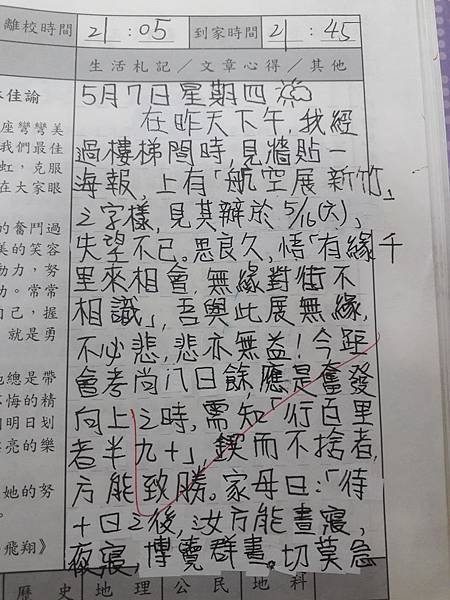 離校時間 21:05 到家時間 21:45
生活札記／文章心得／其他
佳諭
座彎彎美
我們最佳
虹,克服
在大家眼
的奮鬥過
美的笑容
動力,努
力。常常
自己,握
就是勇
他總是帶
不悔的精
明日划
亮的樂
她的努
飛翔》
5月7日星期四
在昨天下午,我經
過樓梯間時,見牆貼一
海報,上有「航空展新竹」
之字樣,見其辦於5/16(六),
失望不已。思良久,悟「有緣千
里來相會,無緣對街不
相識」,吾與此展無緣,
不必悲,悲亦無益!今距
會考尚八日餘,應是奮發
向上之時,需知「行百里
者半九十」,鍥而不捨者,
方能致勝。家母曰:「待
十日之後,汝方能晝寢,
夜寢,博覽群書。切莫急
歷史 地理 公民 地科